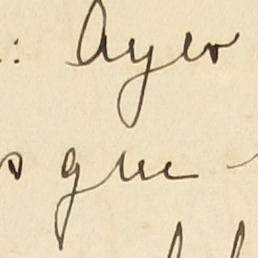 : Ayer
s que